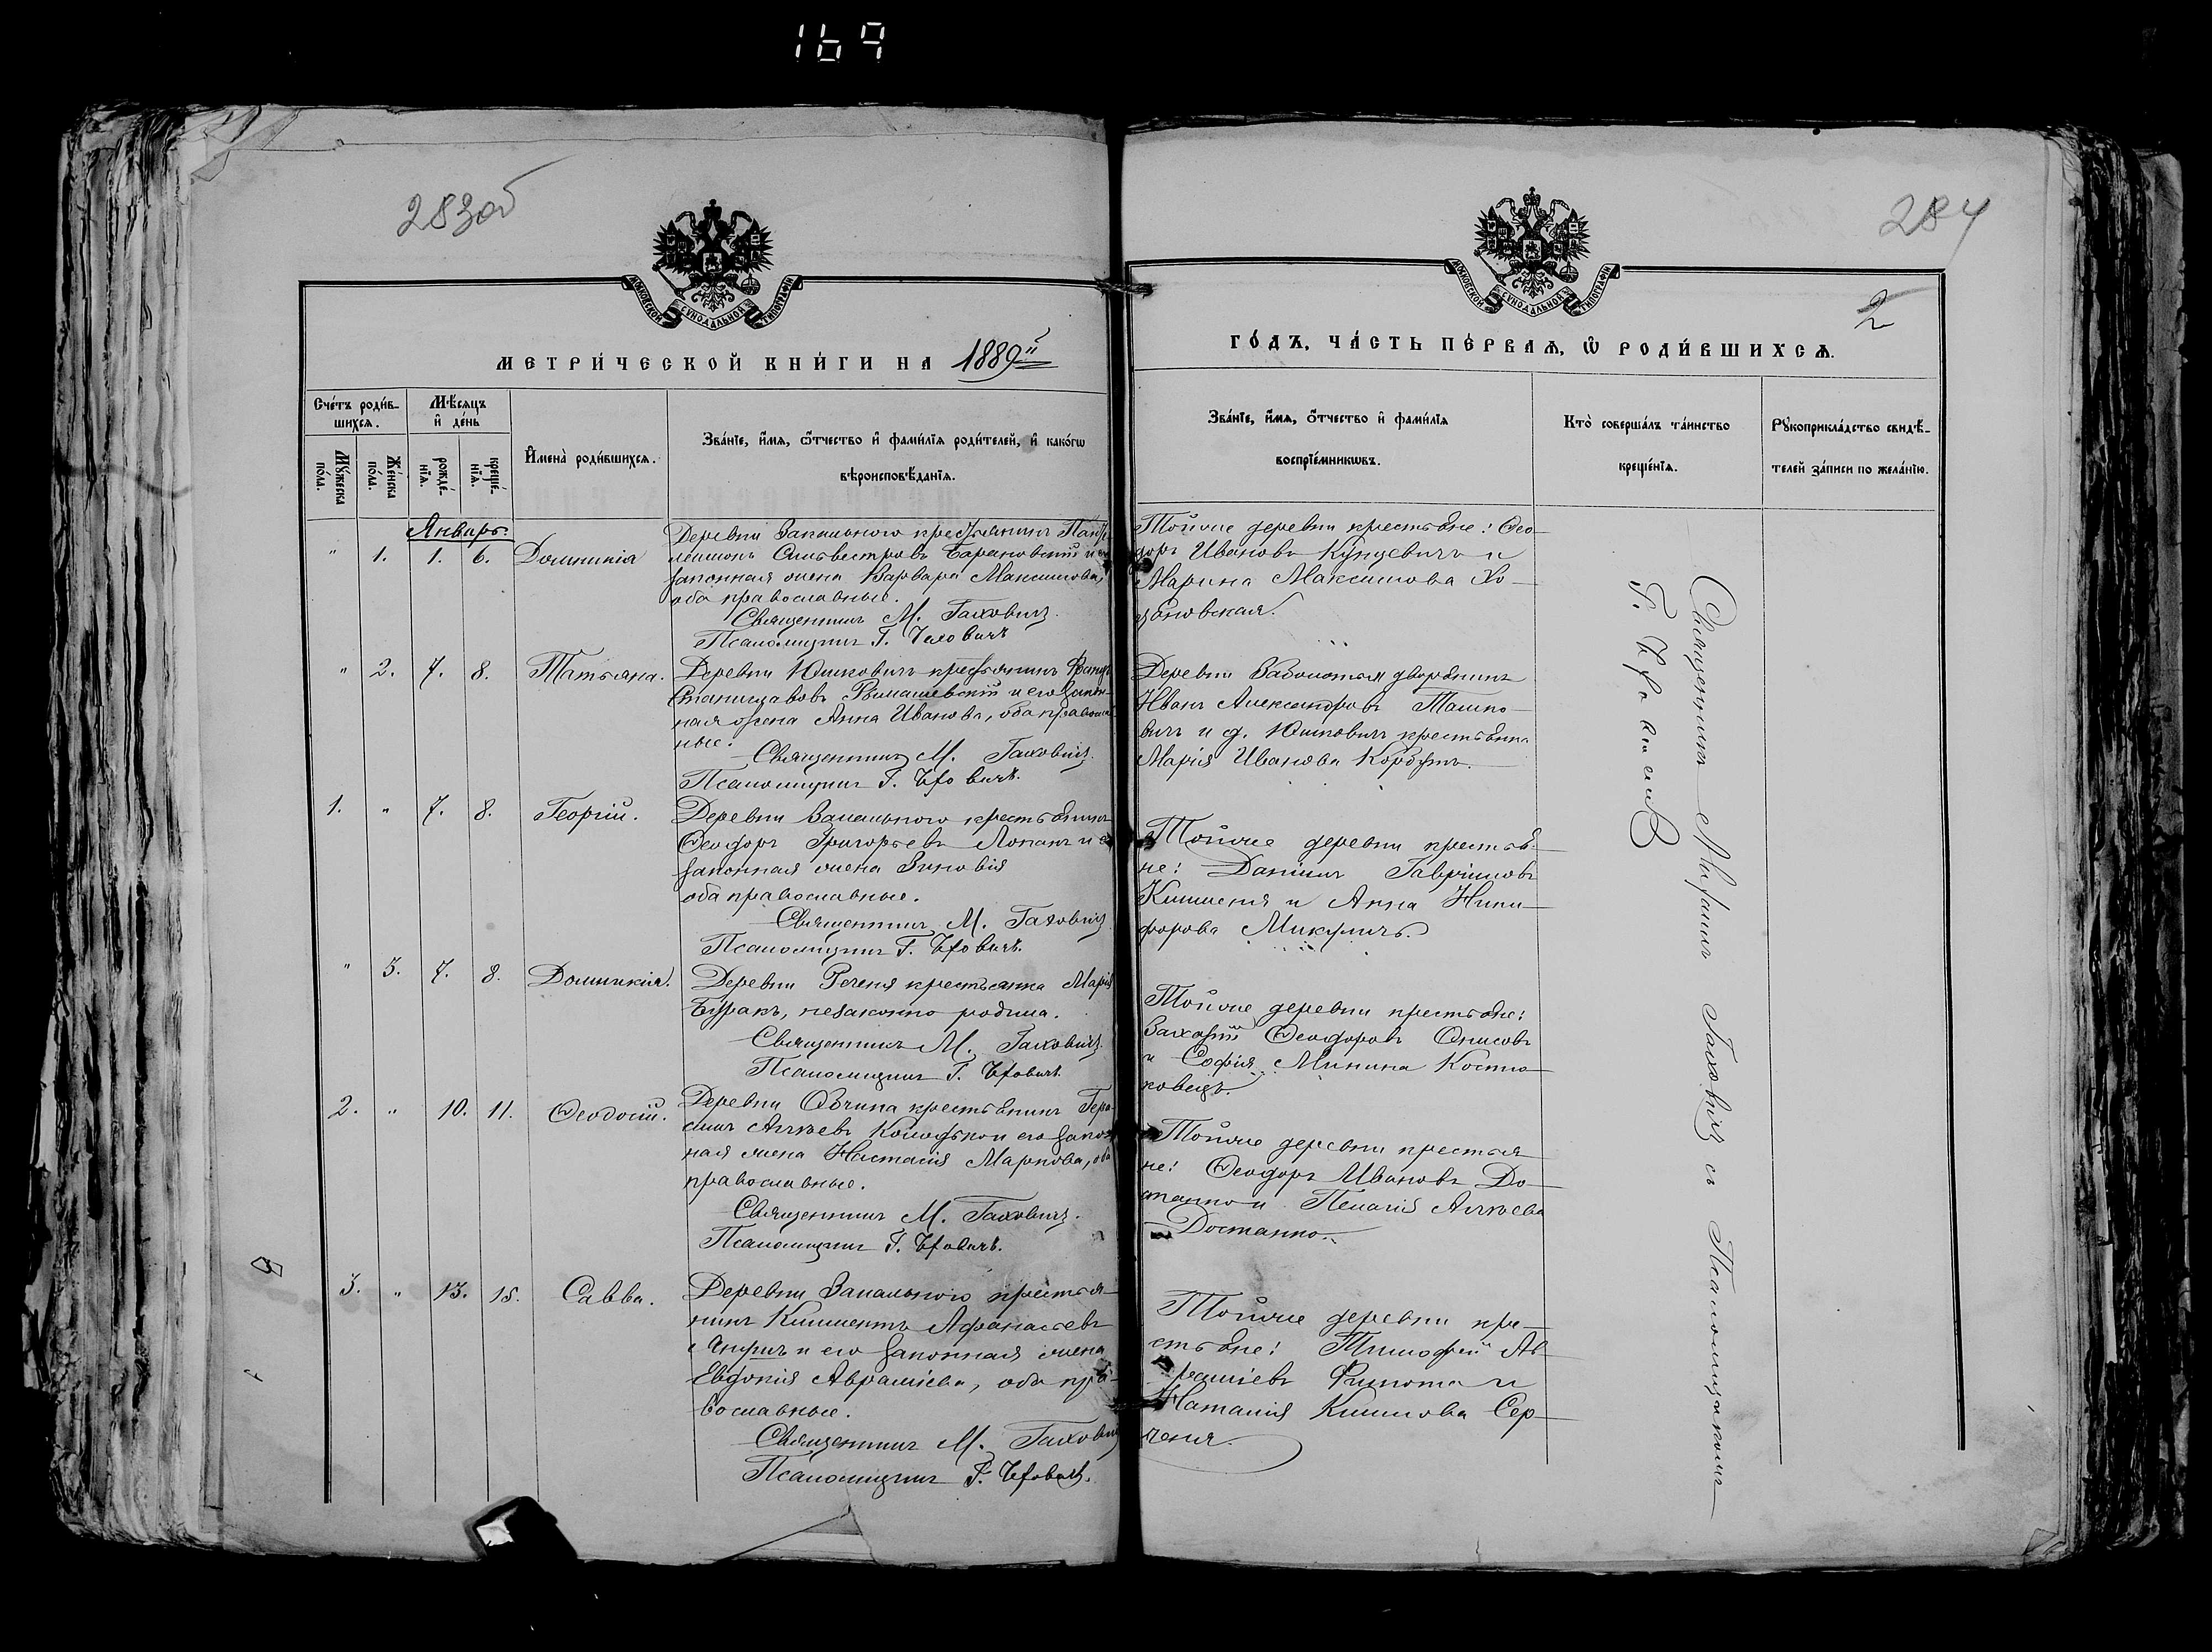 169
283об
284
2
МОСКОВСКОЙ СѴНОДАЛЬНОЙ ТИПОГРАФІИ
МОСКОВСКОЙ СѴНОДАЛЬНОЙ ТИПОГРАФІИ
МЕТРИ́ЧЕСКОЙ КНИ́ГИ НА 1889й
ГО́ДЪ, ЧА́СТЬ ПЕ́РВАѦ, Ѡ РОДИ́ВШИХСѦ.
Сче́тъ роди́в-
шихсѧ.
Мѣ́сѧцъ
и҆ де́нь
Мꙋ́жеска
по́ла.
Же́нска
по́ла.
рожде́-
нїѧ.
креще́-
нїѧ.
И҆мена̀ роди́вшихсѧ.
Зва́нїе, и҆́мѧ, ѻ҆́тчество и҆ фами́лїѧ роди́телей, и҆ како́гѡ
вѣроисповѣ́данїѧ.
Зва́нїе, и҆́мѧ, ѻ҆́тчество и҆ фами́лїѧ
воспрїе́мникѡвъ.
Кто̀ соверша́лъ та́инство
креще́нїѧ.
Рꙋкоприкла́дство свидѣ́-
телей за́писи по жела́нїю.
Январь.
" 1. 1. 6. Домникія
Деревни Запального крестьянинъ Пант
леимонъ Сильвестровъ Барановскій и его
законная жена Варвара Максимова,
оба православные.
Священникъ М. Гахович
Псаломщикъ Г.
Тойже деревни крестьяне: Ѳео-
доръ Ивановъ Кунцевичъ и
Марина Максимова Хо-
зяновская.
" 2. 7. 8. Татьяна.
Деревни Юшковичъ крестьянинъ
Станиславовъ Рымашевскій и его закон-
ная жена Анна Иванова, оба православ
ные.
Священникъ М. Гахович
Псаломщикъ Г.
Деревни Заболотья дворянинъ
Иванъ Александровъ Ташко-
вичъ и д. Юшковичъ крестьянка
Марія Иванова Корбутъ.
1. " 7. 8. Георгій.
Деревни Запального крестьянинъ
Ѳеодоръ Григорьевъ Лопанъ и его
законная жена Зиновія
оба православные.
Священникъ М. Гахович
Псаломщикъ Г.
Тойже деревни крестья-
не: Даніилъ Гавріиловъ
Климентя и Анна Ники-
форова Микуличъ.
" 3. 7. 8. Домникія.
Деревни Реченя крестьянка Марія
Буракъ, незаконно родила.
Священникъ М. Гахович
Псаломщикъ Г.
Тойже деревни крестьяне:
Захарій Ѳеодоровъ Онисовъ
и Софія Минина Костю-
ковецъ.
2. " 10. 11. Ѳеодосій.
Деревни Овчина крестьянинъ Гера-
симъ Алексѣевъ и его закон
ная жена Настасія Маркова, оба
православные.
Священникъ М. Гахович
Псаломщикъ Г.
Тойже деревни крестья-
не: Ѳеодоръ Ивановъ До-
станко и Пелагія
Достанко.
3. " 13. 15. Савва.
Деревни Запального крестья-
нинъ Климентъ Аѳанасьевъ
и его законная жена
Евдокія Авраміева, оба пра-
вославные.
Священникъ М. Гахович
Псаломщикъ Г.
Тойже деревни кре-
стьяне: Тимоѳей Ав-
раміевъ Филюта и
Наталія Климова Сер-
ченя.
Священникъ Митрофанъ Гахович съ Псаломщикомъ
Г.